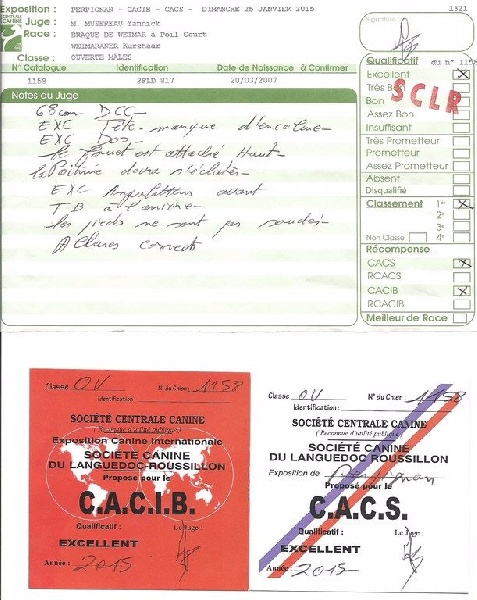 Exposition : PERPIGNAN - CACIB - CACS - DIMANCHE 25 JANVIER 2015 1321
CENTRALE CANINE
Juge : M. MUSEREAU Yannick
Race : BRAQUE DE WEIMAR à Poil Court
WEIMARANER Kurzhaar
Classe : OUVERTE MÂLES
Signature
N° Catalogue Identification Date de Naissance À Confirmer
1158 2FLD 917 20/03/2007
Notes du Juge
68 cm DCC
EXC Tête manque d'encolure
EXC Dos
Le fouet est attaché Haut
La Poitrine devra s'éclater
EXC Angulations avant
TB à l'arrière
Les pieds ne sont pas
Allures correct
Qualificatif du n° 1158
Excellent X
Très Bon
Bon
SCLR
Assez Bon
Insuffisant
Très Prometteur
Prometteur
Assez Prometteur
Absent
Disqualifié
Classement 1er X
2e
3e
Non Classé 4e
Récompense
CACS X
RCACS
CACIB X
RCACIB
Meilleur de Race
Classe : OV N° du Chien 1158
Identification
SOCIÉTÉ CENTRALE CANINE
(Reconnue d'utilité publique)
Exposition Canine Internationale
SOCIÉTÉ CANINE
DU LANGUEDOC-ROUSSILLON
Proposé pour le
C.A.C.I.B.
Qualificatif : Le Juge :
EXCELLENT
Année : 2015
Classe : OV N° du Chien 1158
Identification :
SOCIÉTÉ CENTRALE CANINE
(Reconnue d'utilité publique)
SOCIÉTÉ CANINE
DU LANGUEDOC-ROUSSILLON
Exposition de Perpignan
Proposé pour le
C.A.C.S.
Qualificatif : Le Juge :
EXCELLENT
Année : 2015